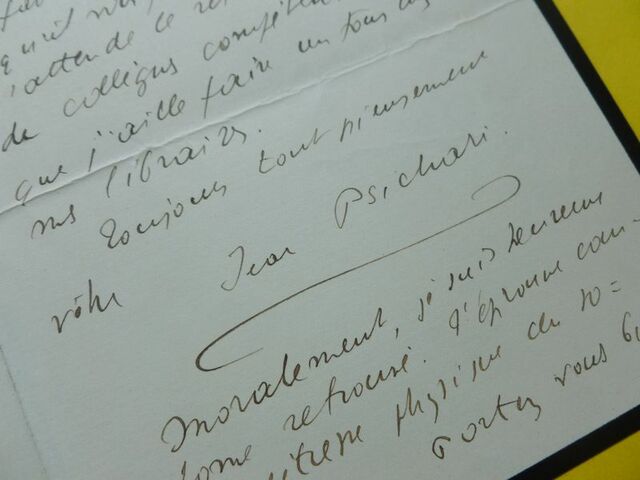 qu'il
j'attende ce
de collègues compétents
que j'aille faire un tour
nos libraires.
Toujours tout pieusement
vôtre Jean Psichari.
Moralement, je suis heureux
retrouvé. J'éprouve com-
physique du 10=
Portez vous bi